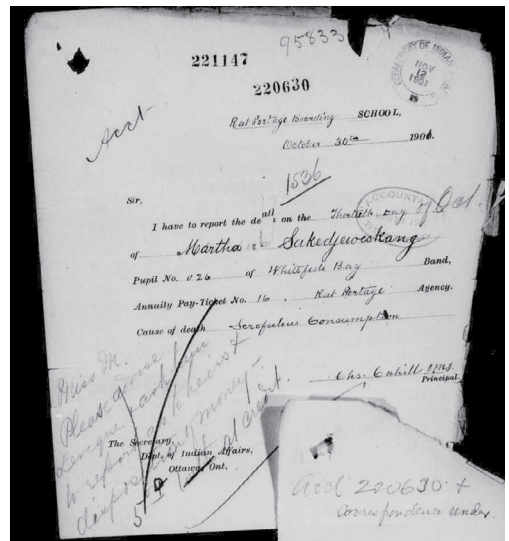 95833
221147
220630
DEPARTMENT OF INDIAN
NOV
12
1901
Acct
Rat Portage Boarding SCHOOL,
October 30th 1901.
1536
Sir,
I have to report the death on the Thirtieth Day of Oct.
ACCOUNTANT
of Martha Sakedjewiskang
Pupil No. 026 of Whitefish Bay Band,
Annuity Pay-Ticket No. 16, Rat Portage Agency.
Cause of death Scrofulous Consumption
Chs. Cahill OMI.
Principal.
Miss M.
Please advise
to report as to heirs &
disposition of money
at credit.
The Secretary,
Dept. of Indian Affairs,
Ottawa, Ont.
5
220630 +
Correspondence under